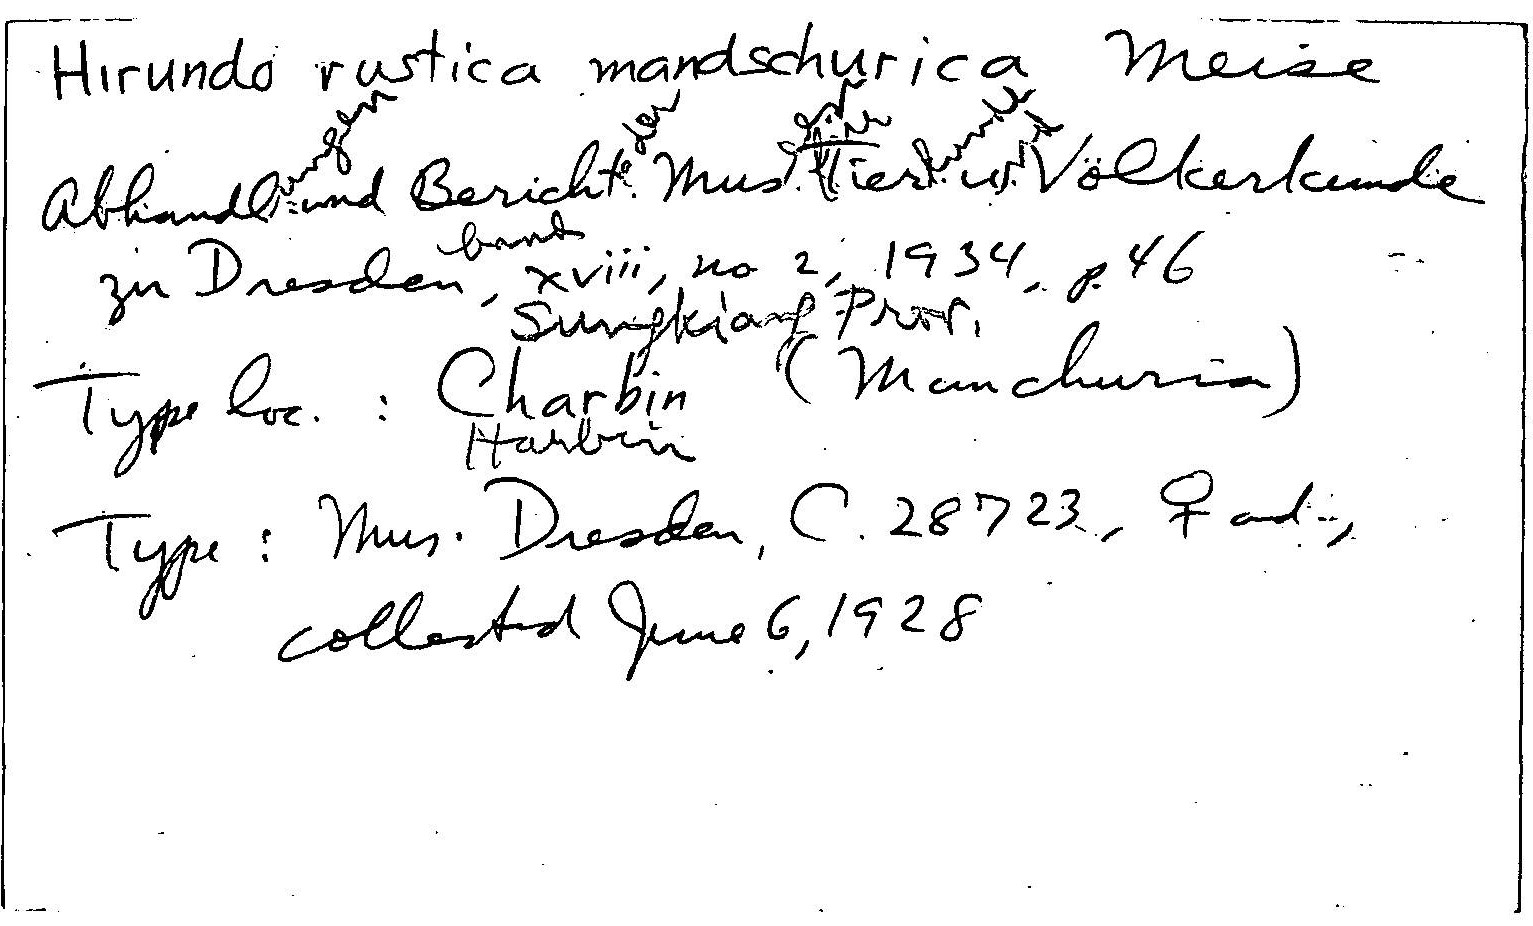 Hirundo rustica mandschurica Meise
ungen der für kunde und
Abhandl. und Bericht. Mus. Tier u. Völkerkunde
band
zu Dresden, xviii, no 2, 1934, p. 46
Sungkiang Prov.
Type loc. : Charbin (Manchuria)
Harbin
Type : Mus. Dresden, C. 28723, ♀ ad.,
collected June 6, 1928